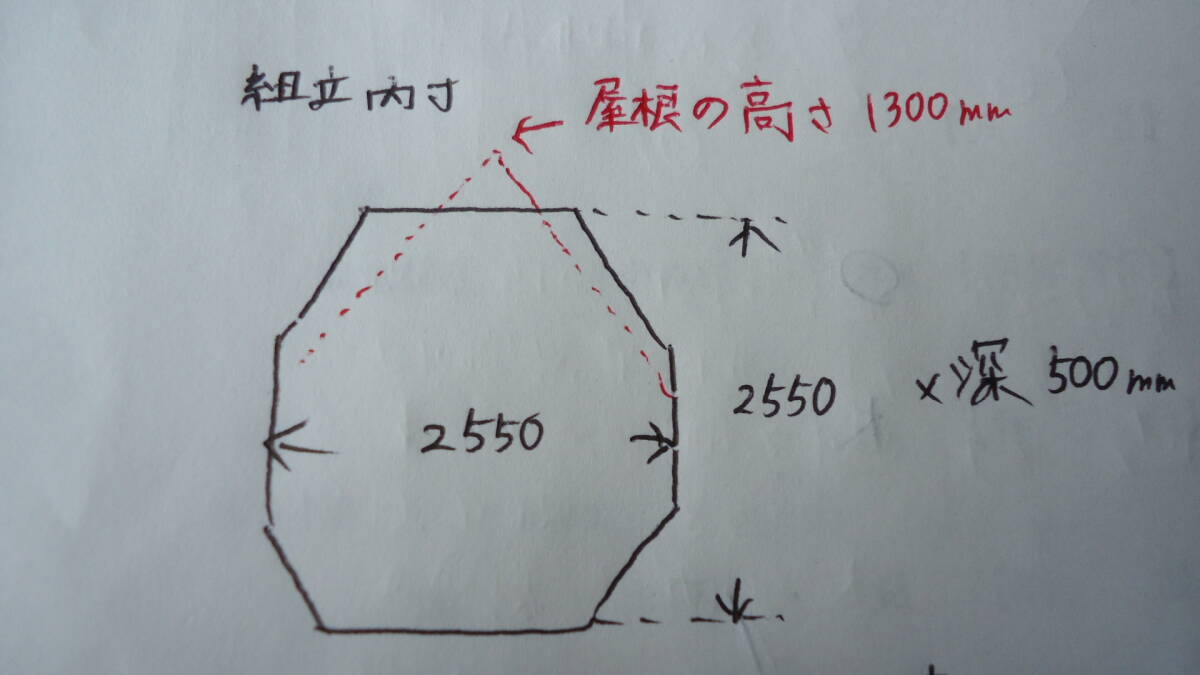 組立内寸
屋根の高さ 1300mm
2550
2550
×深 500mm